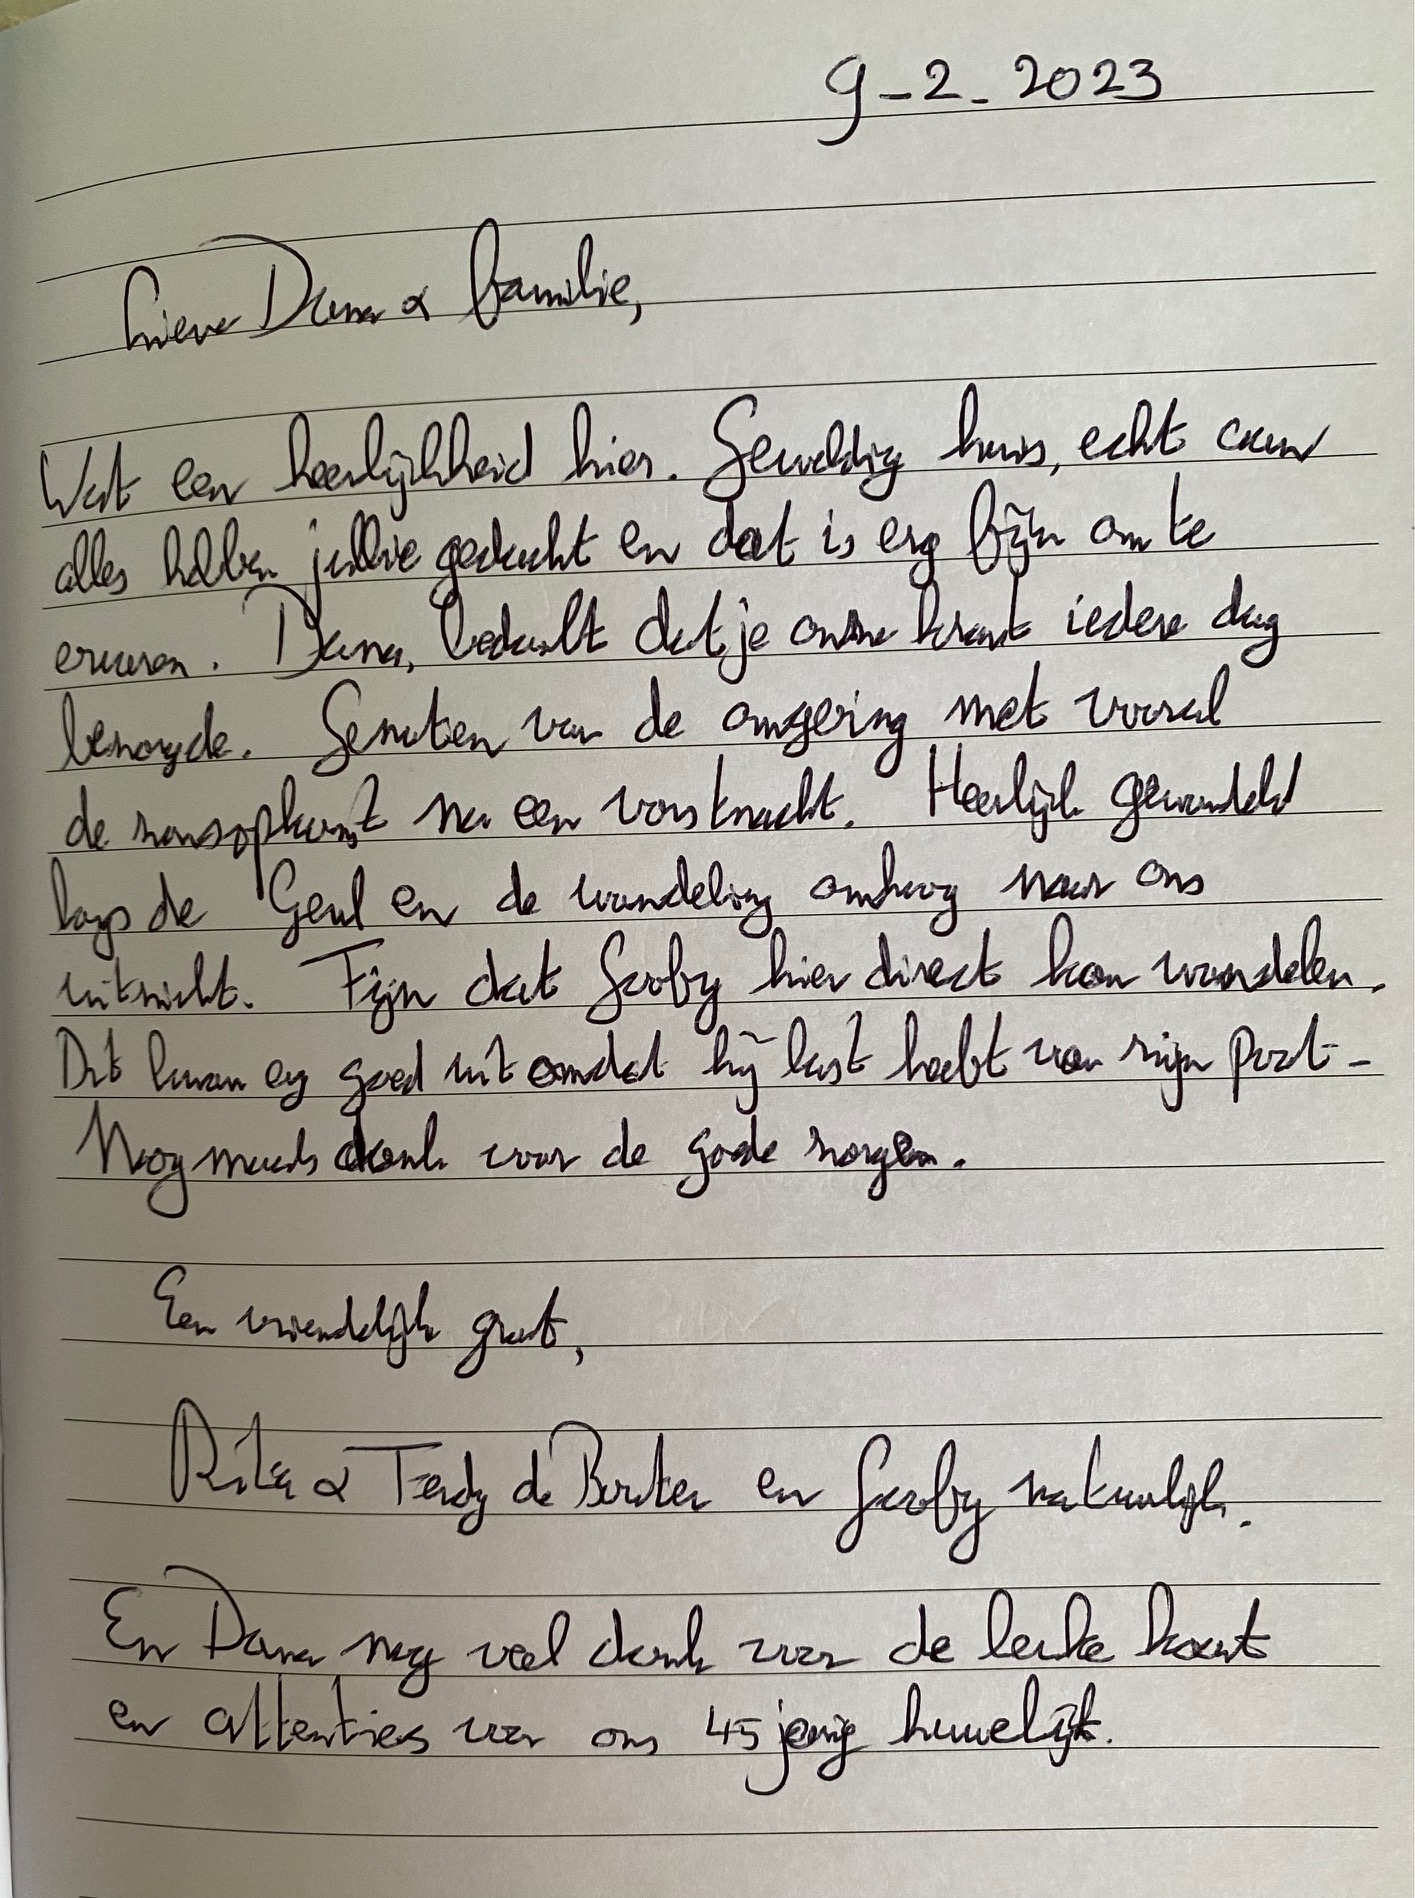 9-2-2023
Lieve Dana & familie,
Wat een heerlijkheid hier. Geweldig huis, echt aan
alles hebben jullie gedacht en dat is erg fijn om te
ervaren. Dana, bedankt dat je onze krant iedere dag
bezorgde. Genoten van de omgeving met vooral
de zonsopkomst na een vorstnacht. Heerlijk gewandeld
langs de Geul en de wandeling omhoog naar ons
uitzicht. Fijn dat hier direct kon wandelen.
Dit kwam erg goed uit omdat hij last heeft van zijn poot-
Nogmaals dank voor de goede zorgen.
Een vriendelijk groet,
Rita & de en natuurlijk.
En Dana nog veel dank voor de leuke kaart
en attenties voor ons 45 jarig huwelijk.